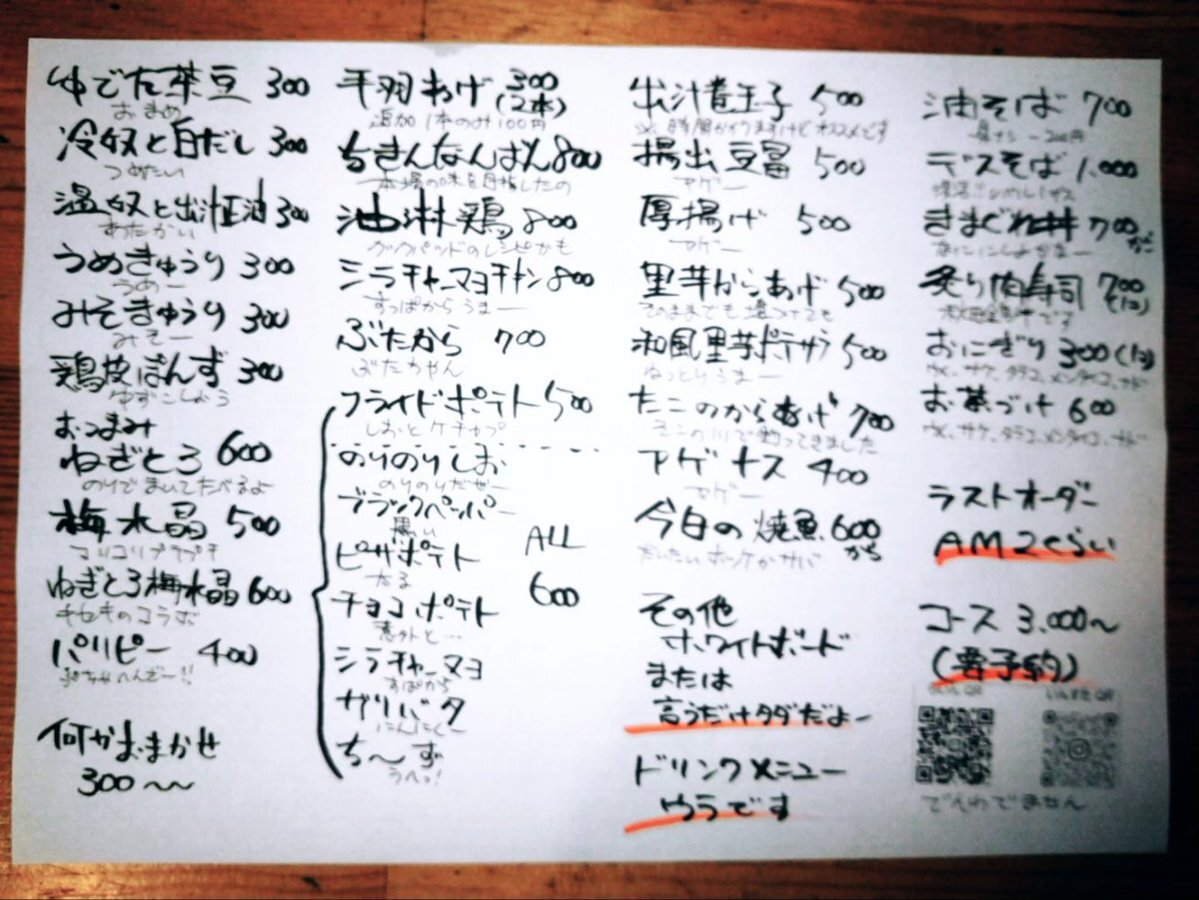 ゆでた茶豆 300
おまめ
冷奴と白だし 300
つめたい
温奴と出汁正油 300
あたたかい
うめきゅうり 300
うめー
みそきゅうり 300
みそー
鶏皮ぽんず 300
ゆずこしょう
おつまみ
ねぎとろ 600
のりでまいてたべるよ
梅水晶 500
コリコリプチプチ
ねぎとろ梅水晶 600
キセキのコラボ
パリピー 400
何かおまかせ
300〜〜
手羽あげ 300
(2本)
追加1本のみ100円
ちきんなんばん 800
本場の味を目指したの
油淋鶏 800
クックパッドのレシピかも
シラチャーマヨチキン 800
すっぱからうまー
ぶたから 700
ぶたちゃん
フライドポテト 500
しおとケチャプ
のりのりしお
のりのりだぜー
ブラックペッパー
黒い
ピザポテト
チョコポテト
意外と…
シラチャーマヨ
すぱから
ガリバタ
にんにくー
ち〜ず
うへっ!
ALL
600
出汁煮玉子 500
時間かかりますけどオススメです
揚出豆冨 500
アゲー
厚揚げ 500
アゲー
里芋からあげ 500
そのままでも塩つけても
和風里芋ポテサラ 500
ねっとりうまー
たこのからあげ 700
そこの川で釣ってきました
アゲナス 400
アゲー
今日の焼魚 600
から
だいたいホッケかサバ
その他
ホワイトボード
または
言うだけタダだよー
ドリンクメニュー
ウラです
油そば 700
デスそば 1.000
きまぐれ丼 700
から
なににしよかなー
炙り肉寿司 700
おにぎり 300(1コ)
ウメ、サケ、タラコ、メンタイコ、
お茶づけ 600
ウメ、サケ、タラコ、メンタイコ、
ラストオーダー
AM2くらい
コース 3.000〜
(要予約)
でんわでません